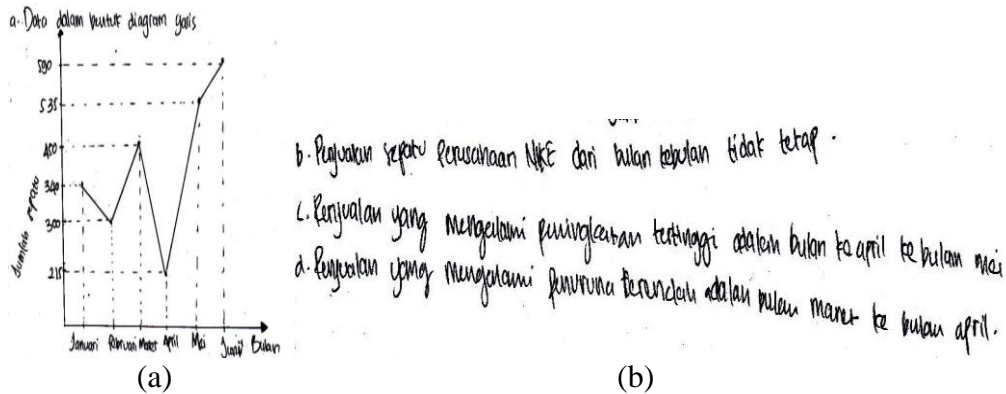 a. Data dalam bentuk diagram garis
590
535
450
340
300
215
Jumlah sepatu
Januari Februari Maret April Mei Juni Bulan
b. Penjualan sepatu perusahaan NIKE dari bulan kebulan tidak tetap.
c. Penjualan yang mengalami peningkatan tertinggi adalah bulan ke april ke bulan mei
d. Penjualan yang mengalami penuruna terendah adalah bulan maret ke bulan april.
(a)
(b)